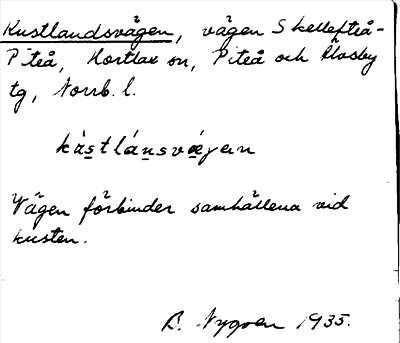 Kustlandsvägen, vägen Skellefteå-
Piteå, Hortlax sn, Piteå och Älvsby
tg, Norrb. l.
kàstlánsvágen
Vägen förbinder samhällena vid
kusten.
B. Nygren 1935.